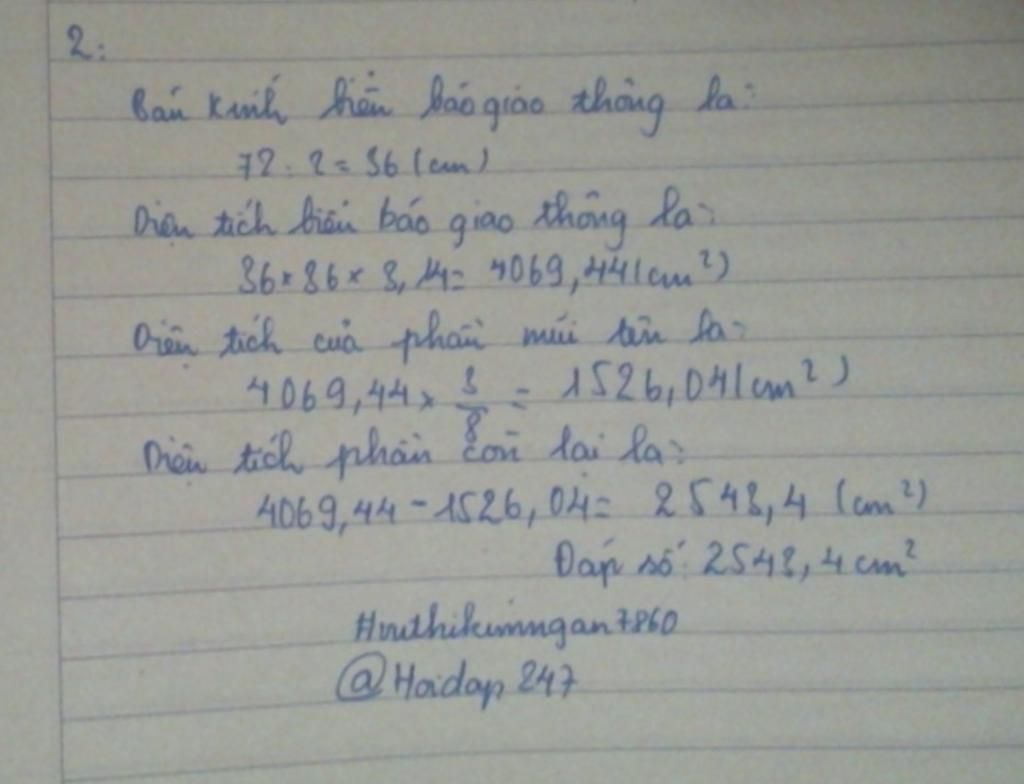 2:
Bán kính biển báo giao thông là:
72 : 2 = 36 (cm)
Diện tích biển báo giao thông là:
36 × 36 × 3,14 = 4069,44 (cm²)
Diện tích của phần mũi tên là:
4069,44 × 3/8 = 1526,04 (cm²)
Diện tích phần còn lại là:
4069,44 - 1526,04 = 2543,4 (cm²)
Đáp số: 2543,4 cm²
#vuthikimngan7860
@Hoidap 247